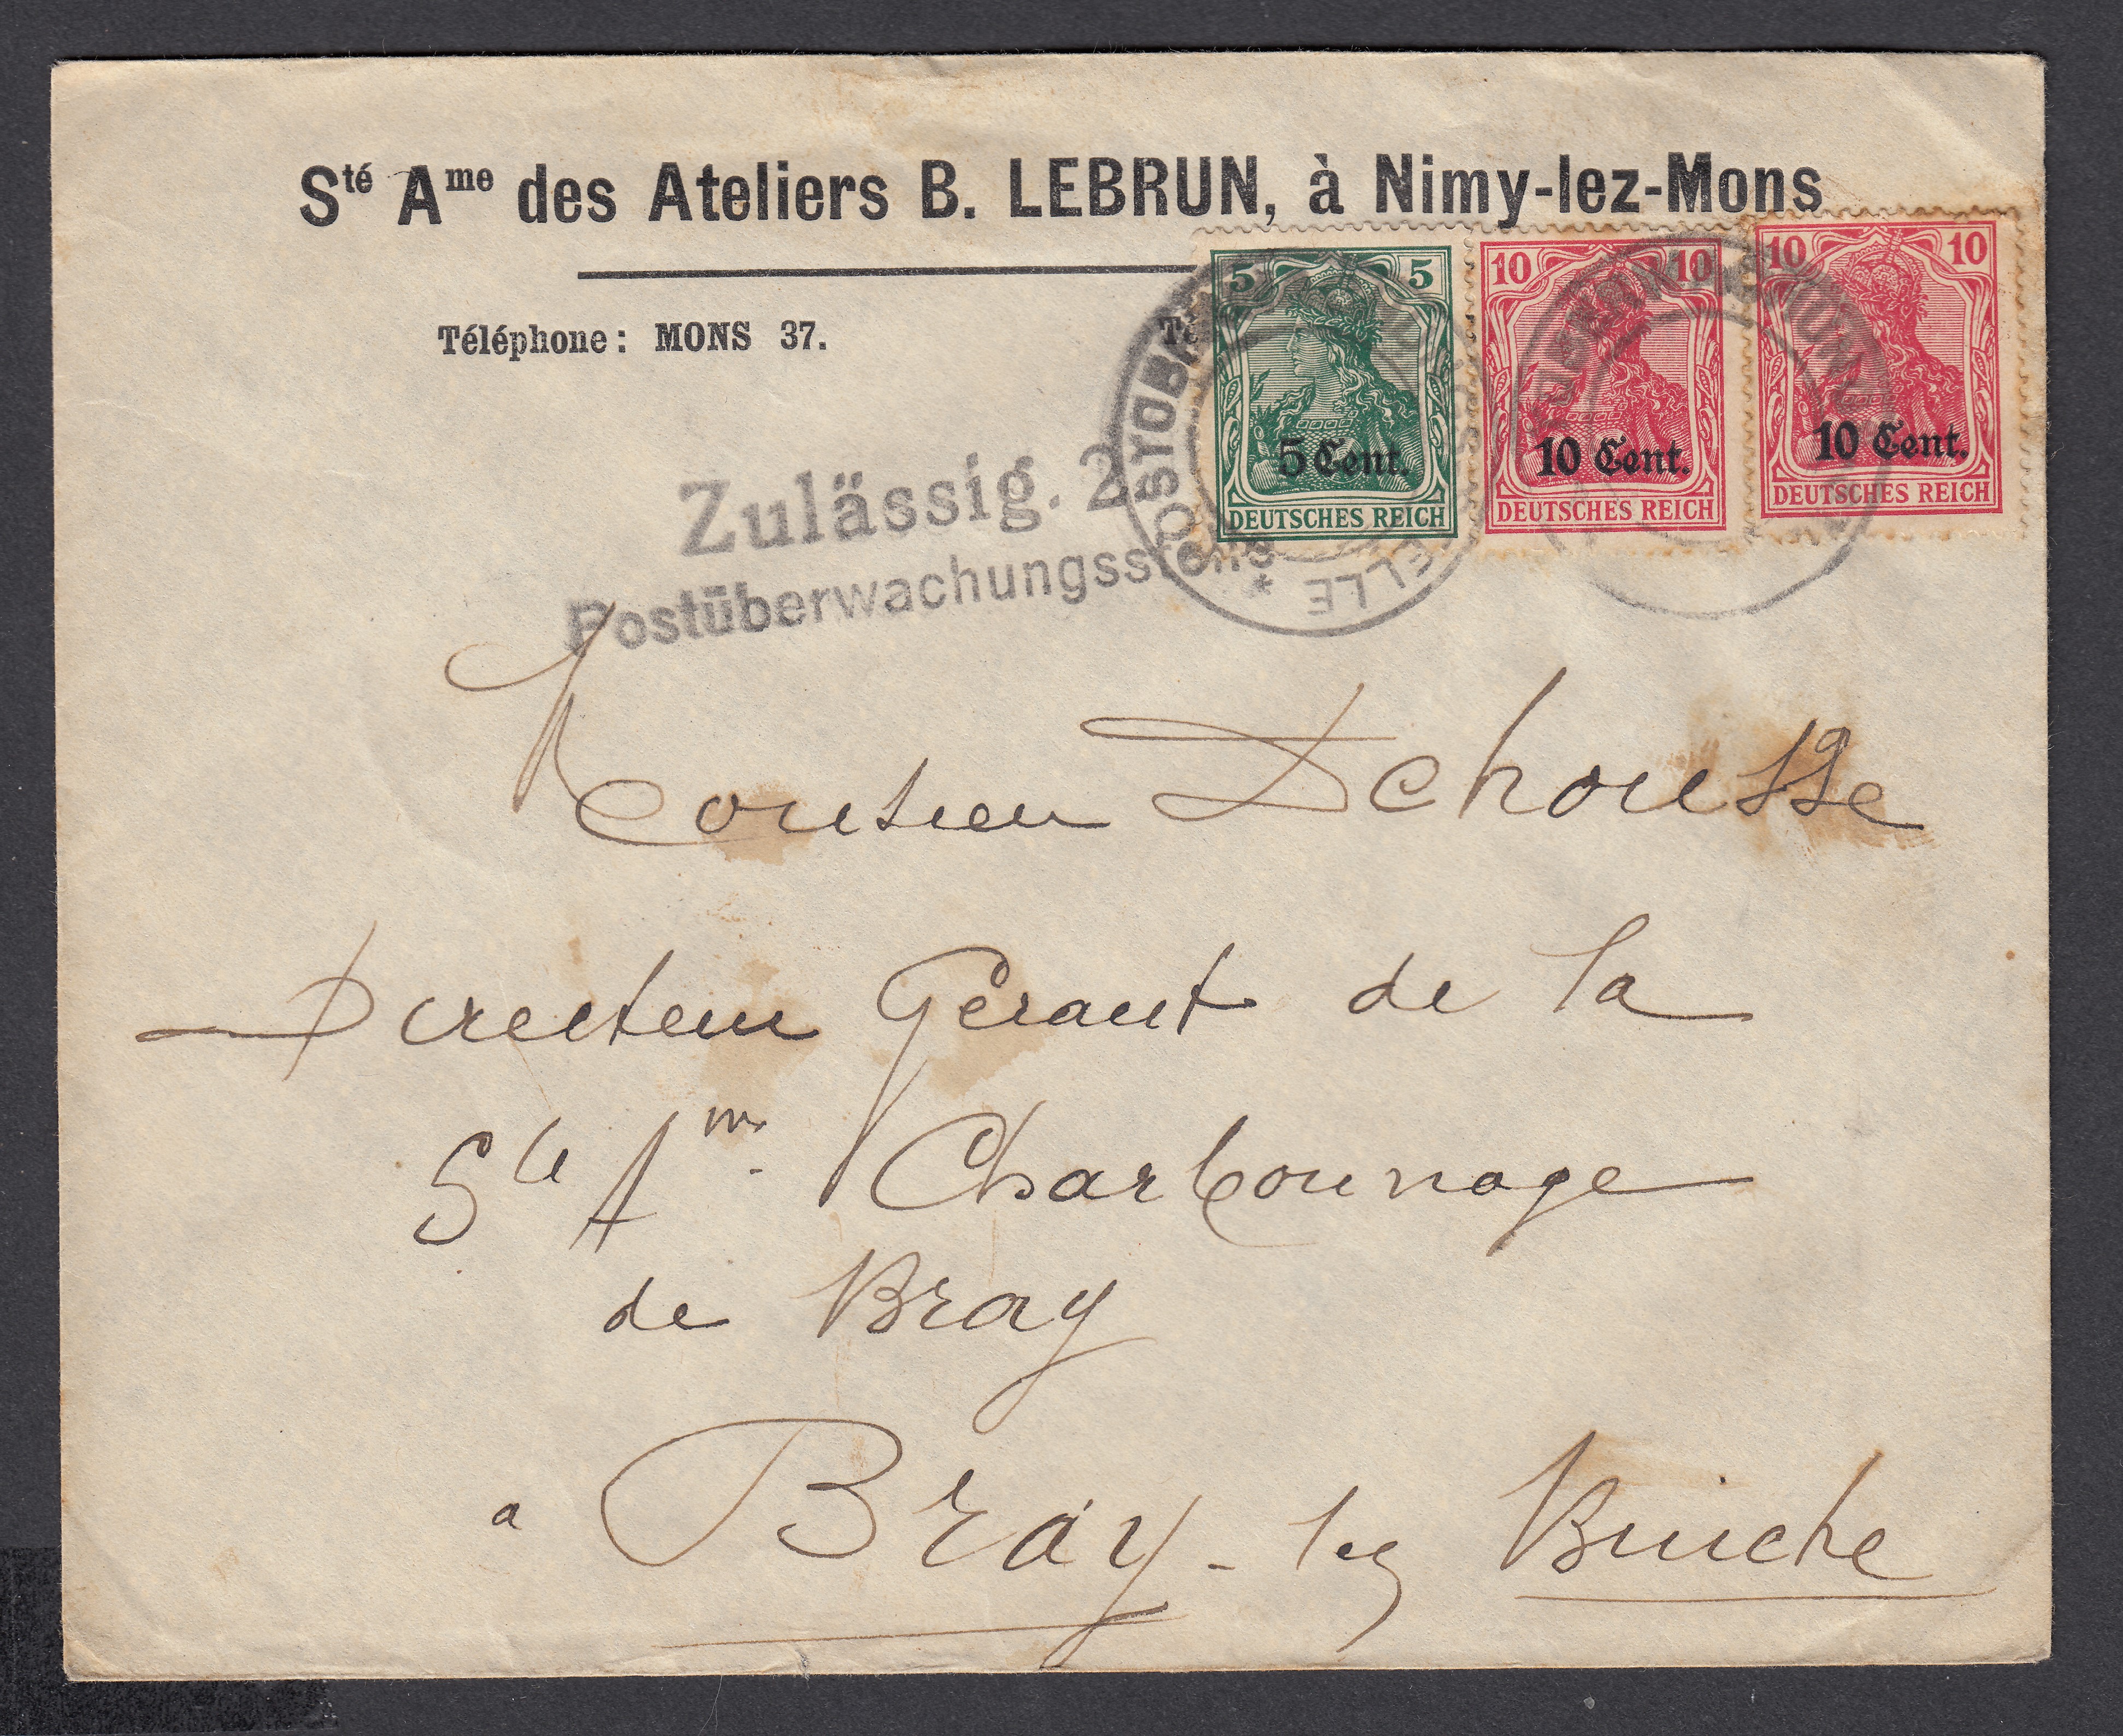 Sté Ame des Ateliers B. LEBRUN, à Nimy-lez-Mons
Téléphone: MONS 37.
Té
5 5
5 Cent.
DEUTSCHES REICH
10 10
10 Cent.
DEUTSCHES REICH
10 10
10 Cent.
DEUTSCHES REICH
Zulässig. 2
Postüberwachungsstelle
Monsieur Dehousse
Directeur Gérant de la
Sté Ame Charbonnage
de Bray
a Bray-lez Binche